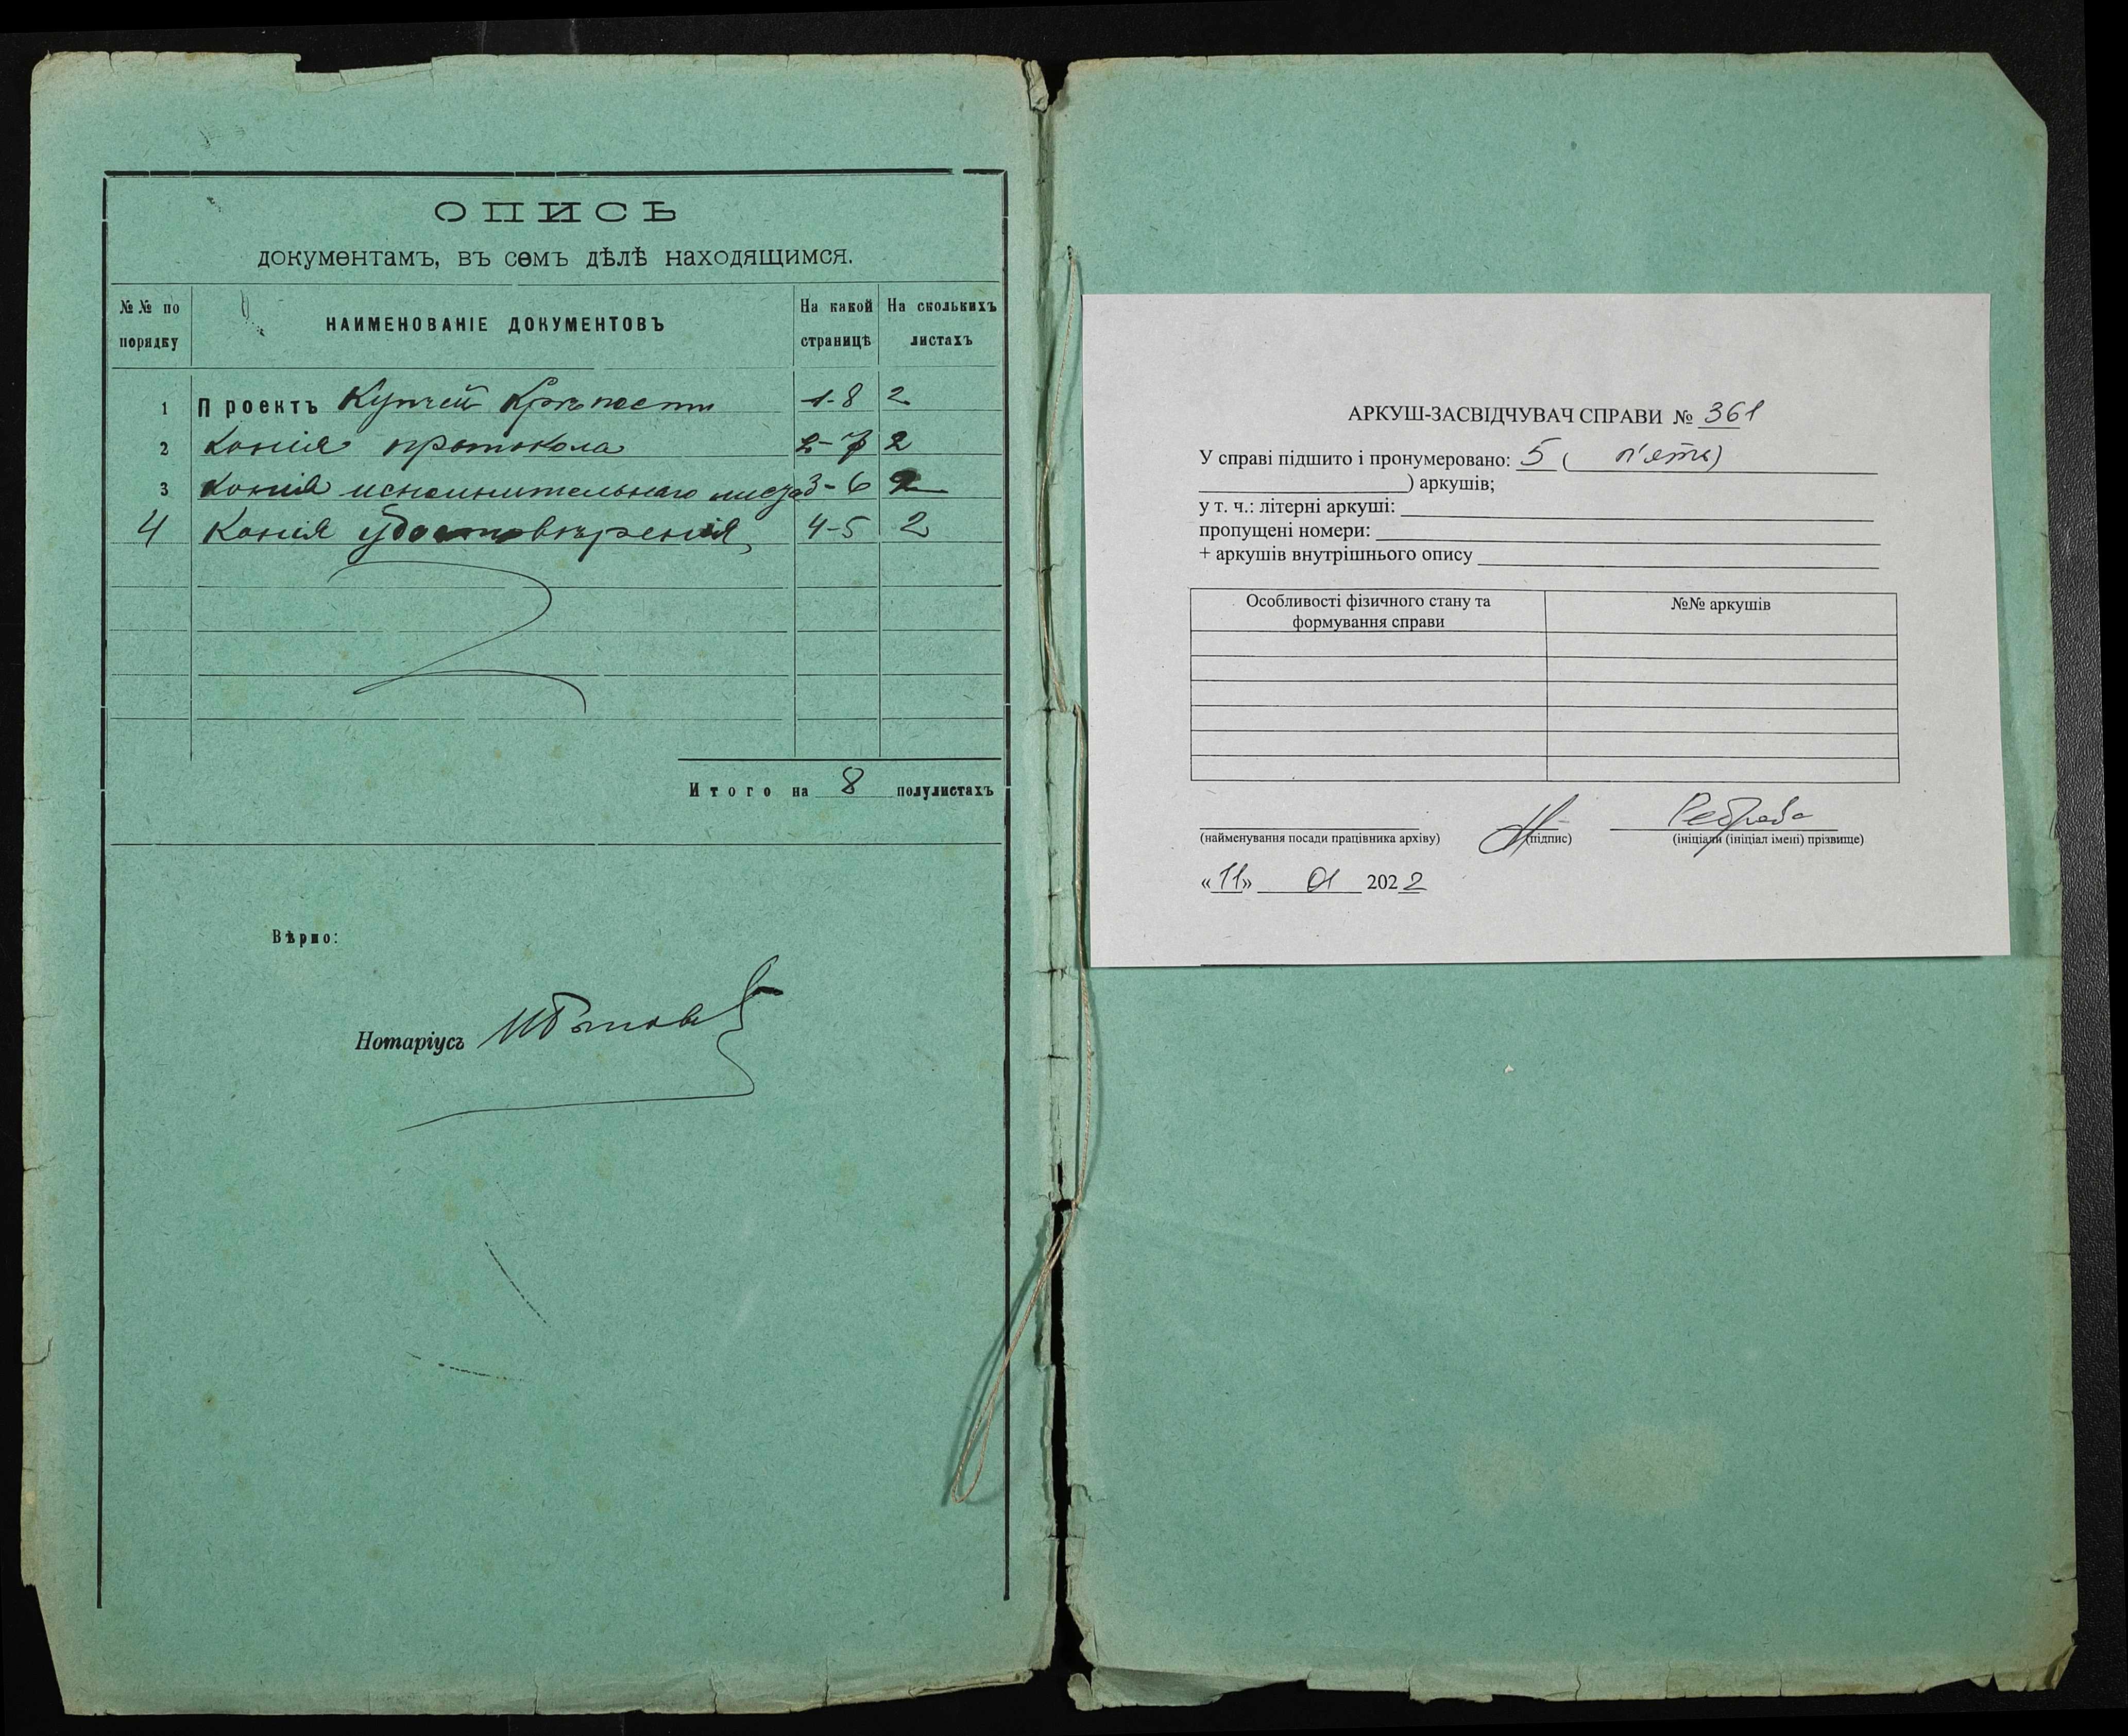 ОПИСЬ
документамъ, въ семъ дѣлѣ находящимся.
№№ по порядку
НАИМЕНОВАНІЕ ДОКУМЕНТОВЪ
На какой страницѣ
На сколькихъ листахъ
1 Проектъ Купчей Крѣпости 1-8 2
2 Копія протокола 2-7 2
3 Копія исполнительнаго листа 3-6 2
4 Копія удостовѣренія, 4-5 2
Итого на 8 полулистахъ
Вѣрно:
Нотаріусъ
АРКУШ-ЗАСВІДЧУВАЧ СПРАВИ № 361
У справі підшито і пронумеровано: 5 ( п'ять)
) аркушів;
у т. ч.: літерні аркуші:
пропущені номери:
+ аркушів внутрішнього опису
Особливості фізичного стану та формування справи
№№ аркушів
(найменування посади працівника архіву) (підпис) (ініціали (ініціал імені) прізвище)
«11» 01 2022